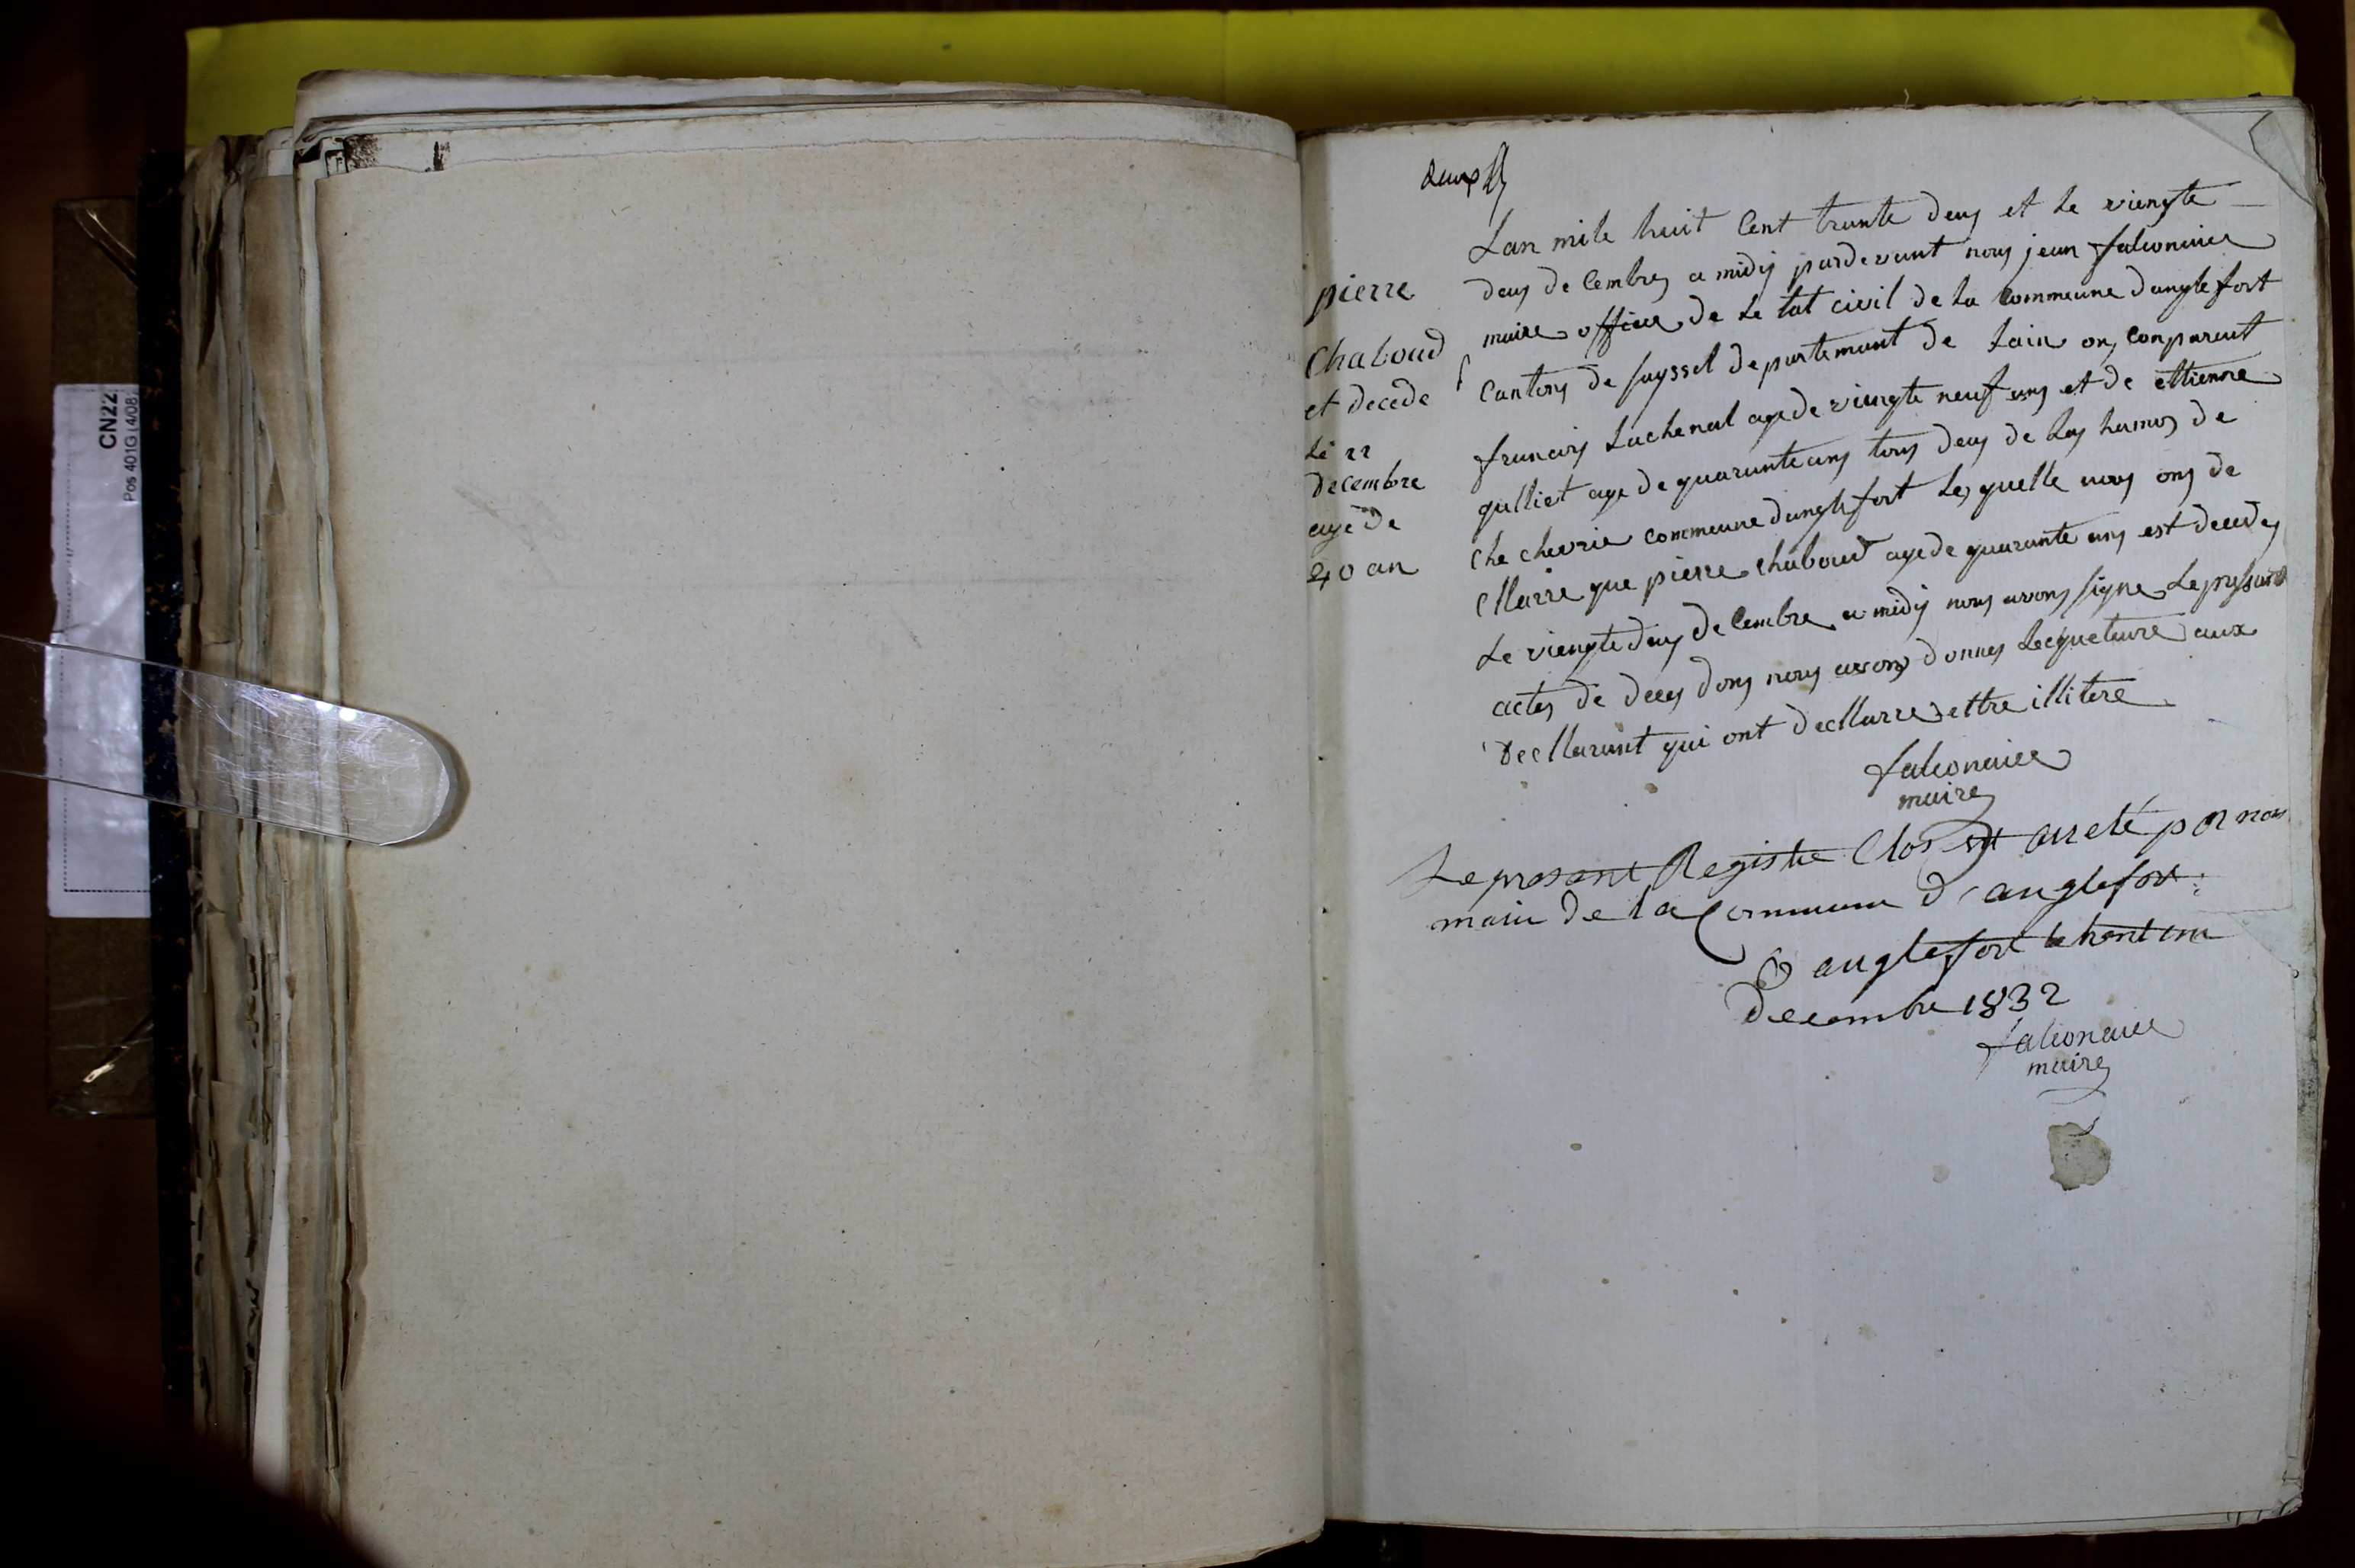 CN22
Pos 401G (4/08)
deux
pierre
Chaboud
et decede
Le 22
decembre
agé de
40 an
Lan mile huit Cent trante deus et Le viengte
deus deCembres a midy pardevant nous jean falconnier
maire officier de Le tat civil de La Commeune danglefort
Cantons de seyssel departemant de Lain ons comparent
francois Lachenal age de viengte neuf ans et de ettienne
galliet age de quarante ans tous deus de Las hamos de
Che chevrie commeune danglefort Les quelle nous ons de
Cllarre que pierre chaboud age de quarante ans est decedes
Le viengte deus deCembre a midy nous avons signe Le presant
actes de deces dons nous avons donnes Lecqueture aux
decllarant qui ont decllarre ettre illitere
falconnier
maire
Le presant Registre Clos et arreté par nous
maire de la Commune d'anglefort
a anglefort le trent une
decembre 1832
falconnier
maire